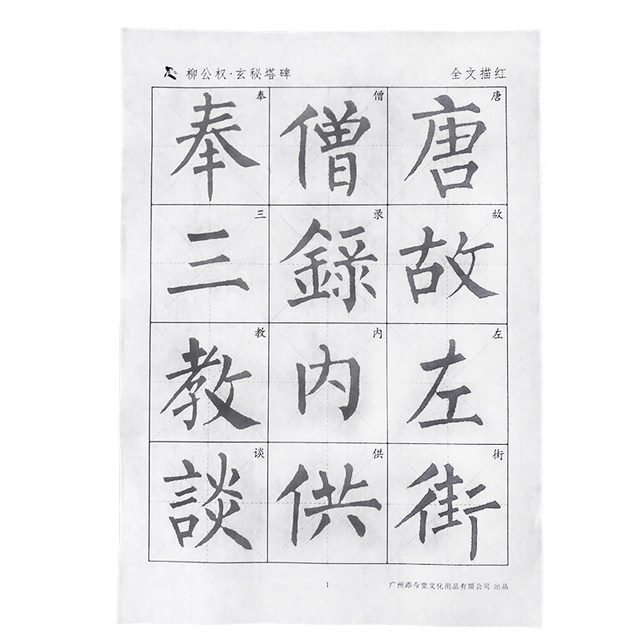 柳公权·玄秘塔碑
全文描红
唐故左街
唐故左街
僧錄内供
僧录内供
奉三教談
奉三教谈
1
广州 文化用品有限公司 出品